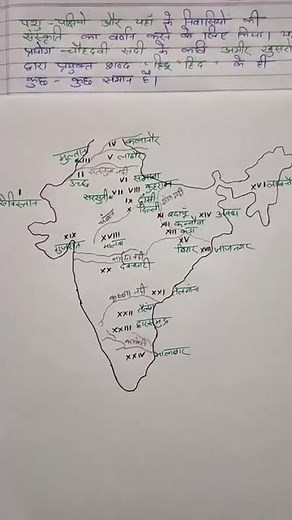 पशु-पक्षियों और यहाँ के निवासियों की
संस्कृति का वर्णन करने के लिए किया। यह
प्रयोग चौदहवीं सदी के कवि अमीर खुसरो
द्वारा प्रयुक्त शब्द 'हिन्द' के ही
कुछ-कुछ समान है।
IV कलानौर
मुल्तान
III
V लाहौर
II
उच्छ
VI समाना
I
सिविस्तान
सरसुती VII VIII कुहराम
IX हाँसी
X दिल्ली
XI बदायूँ XIV अवध
XII कन्नौज
XIII कड़ा
XVI लखनौती
XV
बिहार XVII जाजनगर
XIX
गुजरात
XVIII
मालवा
नर्मदा नदी
XX देवगिरी
कृष्णा नदी
XXI तेलंगाना
XXII तैलंग
XXIII द्वारसमुद्र
कावेरी
XXIV मालाबार